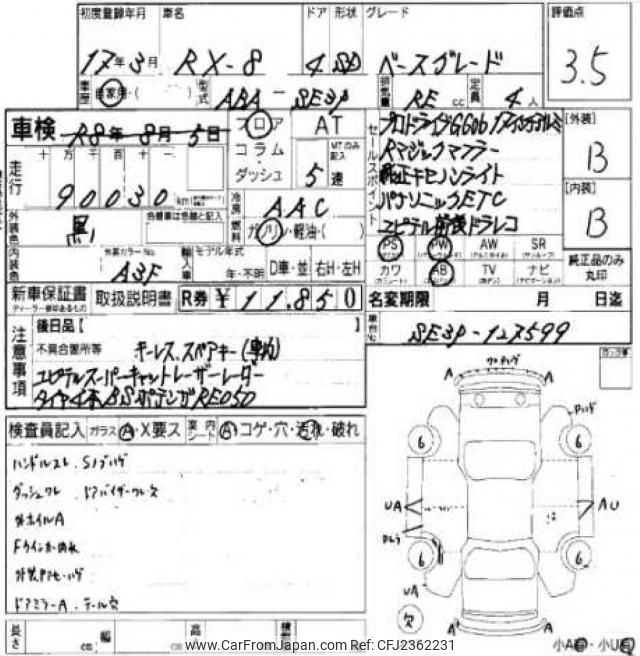 初度登録年月 車名 ドア 形状 グレード 評価点
17年3月 RX-8 4 SD ベースグレード 3.5
車歴 自家用・( ) 型式 ABA-SE3P 排気量 RE cc 定員 4人
車検 R8年8月5日 フロア AT セールスポイント プロドライブGG06 17インチアルミ [外装]
走行 十万千百十一 コラム MTのみ記入 Rマジックマフラー B
ダッシュ 5速 純正キセノンライト [内装]
90030 km 冷房 AAC パナソニックETC B
外装色 黒 色替車は元色と記入 燃料 ガソリン・軽油・( ) ユピテル前後ドラレコ
内装色 外装カラーNo. A3F 輸入車 モデル年式 年・不明 D車・並 右H・左H
PS PW AW SR
カワ AB TV ナビ 純正品のみ丸印
新車保証書 取扱説明書 R券 ¥11,850 名変期限 月 日迄
ディーラー保証あるもの
注意事項 後日品【 】 車台No. SE3P-127599
不具合箇所等 キーレス、スペアキー
ユピテルスーパーキャットレーザーレーダー
タイヤ4本BSポテンザRE050
検査員記入 ガラス A・X要ス 室内シート A・コゲ・穴・汚れ・破れ
ハンドルスレ
ダッシュワレ ドアバイザーワレ欠
外ホイルA
ドアミラーA
A A
6 6
UA AU
6 6
UA
欠 A A
長さ cm 幅 cm 高さ
小A 小U
www.CarFromJapan.com Ref: CFJ2362231